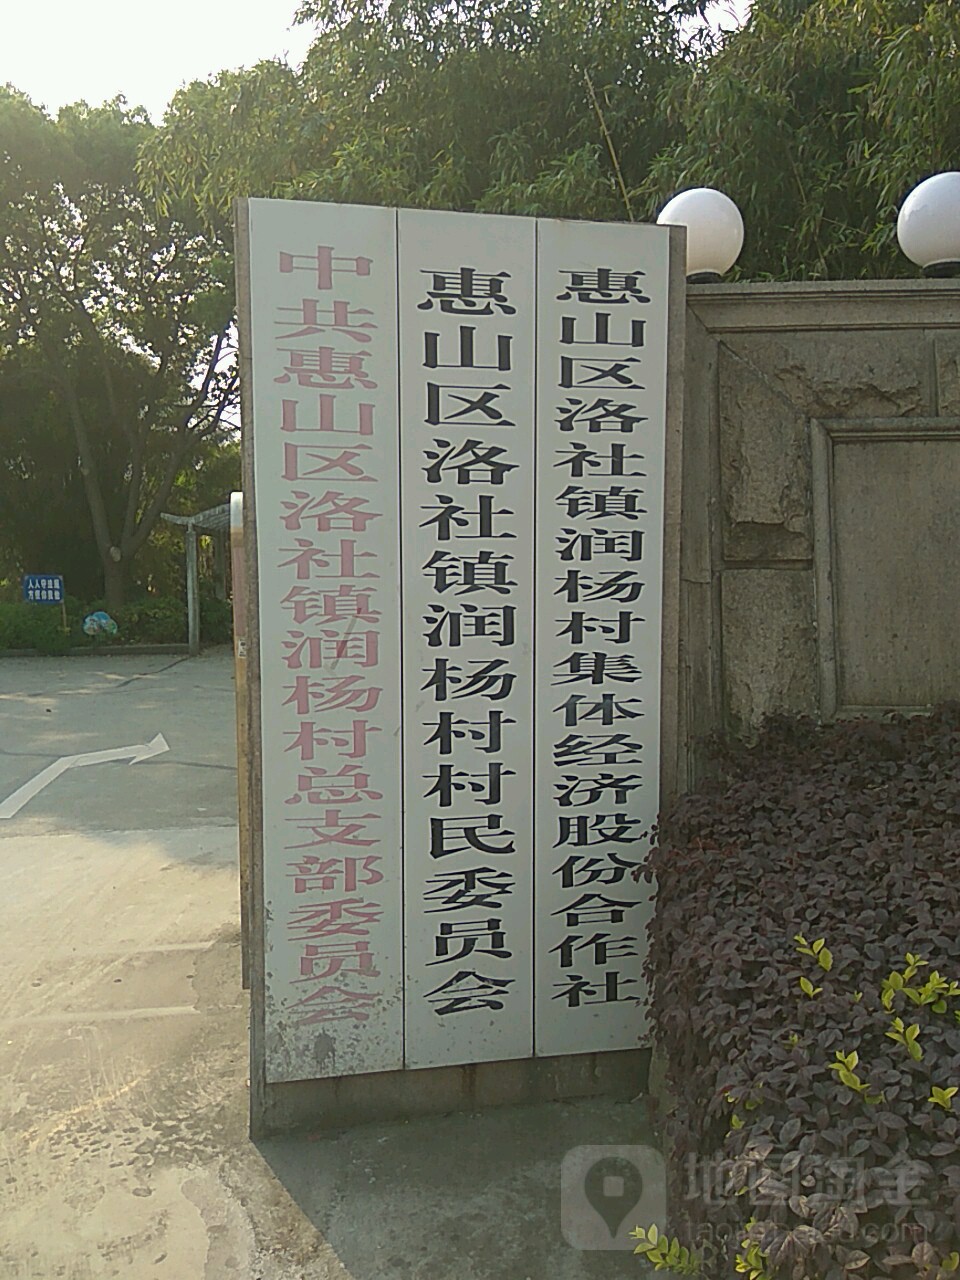 中共惠山区洛社镇润杨村总支部委员会
惠山区洛社镇润杨村村民委员会
惠山区洛社镇润杨村集体经济股份合作社
地图淘金